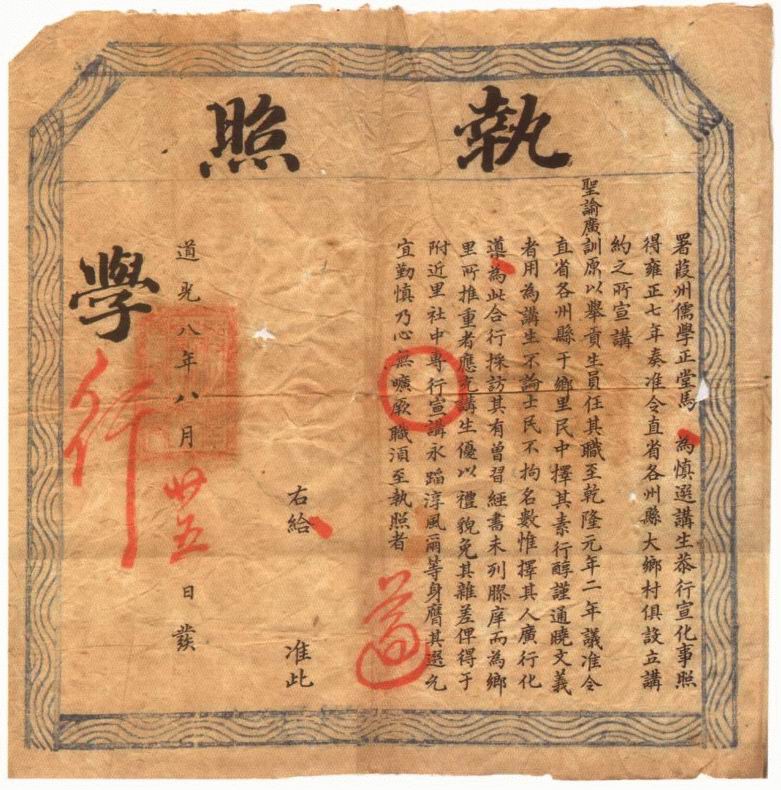 執照
署葭州儒學正堂馬 為慎選講生恭行宣化事照
得雍正七年奏准令直省各州縣大鄉村俱設立講
約之所宣講
聖諭廣訓原以舉貢生員任其職至乾隆元年二年議准令
直省各州縣于鄉里民中擇其素行醇謹通曉文義
者用為講生不論士民不拘名數惟擇其人廣行化
導為此合行採訪其有曾習經書未列膠庠而為鄉
里所推重者應充講生優以禮貌免其雜差俾得于
附近里社中專行宣講永蹈淳風爾等身膺其選允
宜勤慎乃心無曠厥職須至執照者
右給 准此
道光八年八月 廿五 日發
學
行
遵